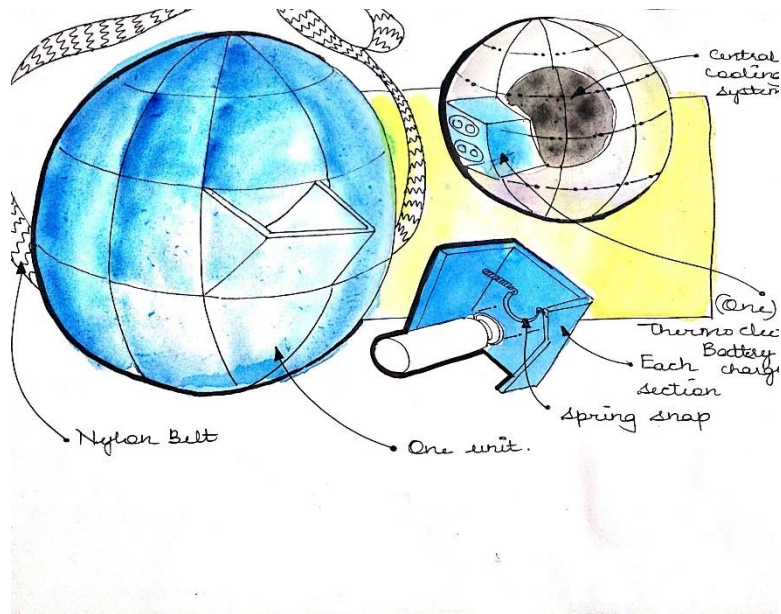 Central
cooling
system
(One)
Thermo elec
Battery
charge
Each
section
spring snap
One unit.
Nylon Belt